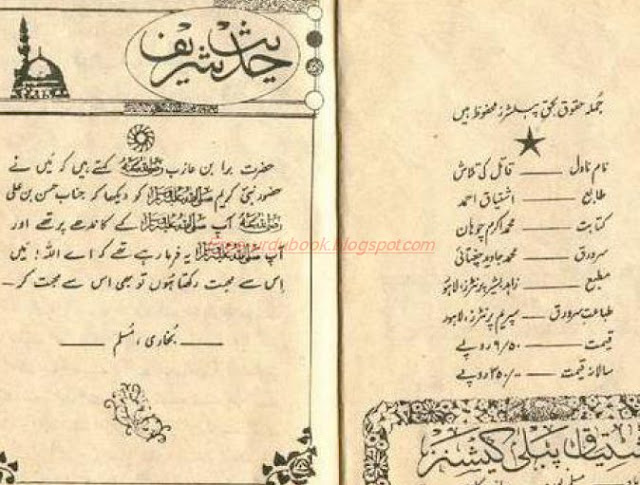 جملہ حقوق بحق پبلشرز محفوظ ہیں
نام ناول — قاتل کی تلاش
طابع — اشتیاق احمد
کتابت — محمد اکرم چوہان
سرورق — محمد جاوید چغتائی
مطبع — زاہد بشیر پرنٹرز، لاہور
طباعت سرورق — سپریم پرنٹرز، لاہور
قیمت — ۹/۵۰ روپے
سالانہ قیمت — ۲۵۰/۰ روپے
اشتیاق پبلی کیشنز
حدیث شریف
حضرت برا بن عازب رضی اللہ عنہ کہتے ہیں کہ میں نے
حضور نبی کریم صلی اللہ علیہ وسلم کو دیکھا کہ جناب حسن بن علی
رضی اللہ عنہ آپ صلی اللہ علیہ وسلم کے کاندھے پر تھے اور
آپ صلی اللہ علیہ وسلم یہ فرما رہے تھے کہ اے اللہ! میں
اِس سے محبت رکھتا ہوں تو بھی اس سے محبت کر —
— بُخاری، مُسلم —
urdubook.blogspot.com